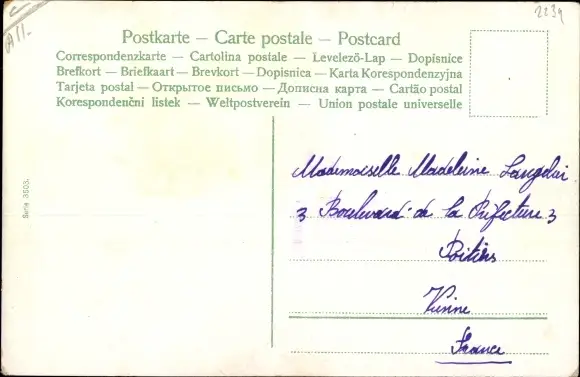 A11.
2239
Postkarte – Carte postale – Postcard
Correspondenzkarte — Cartolina postale — Levelező-Lap — Dopisnice
Brefkort — Briefkaart — Brevkort — Dopisnica — Karta Korespondenzyjna
Tarjeta postal — Открытое письмо — Дописна карта — Cartão postal
Korespondenční listek — Weltpostverein — Union postale universelle
Serie 3503.
Mademoiselle Madeleine
3 Boulevard de la Préfecture 3
Poitiers
Vienne
France